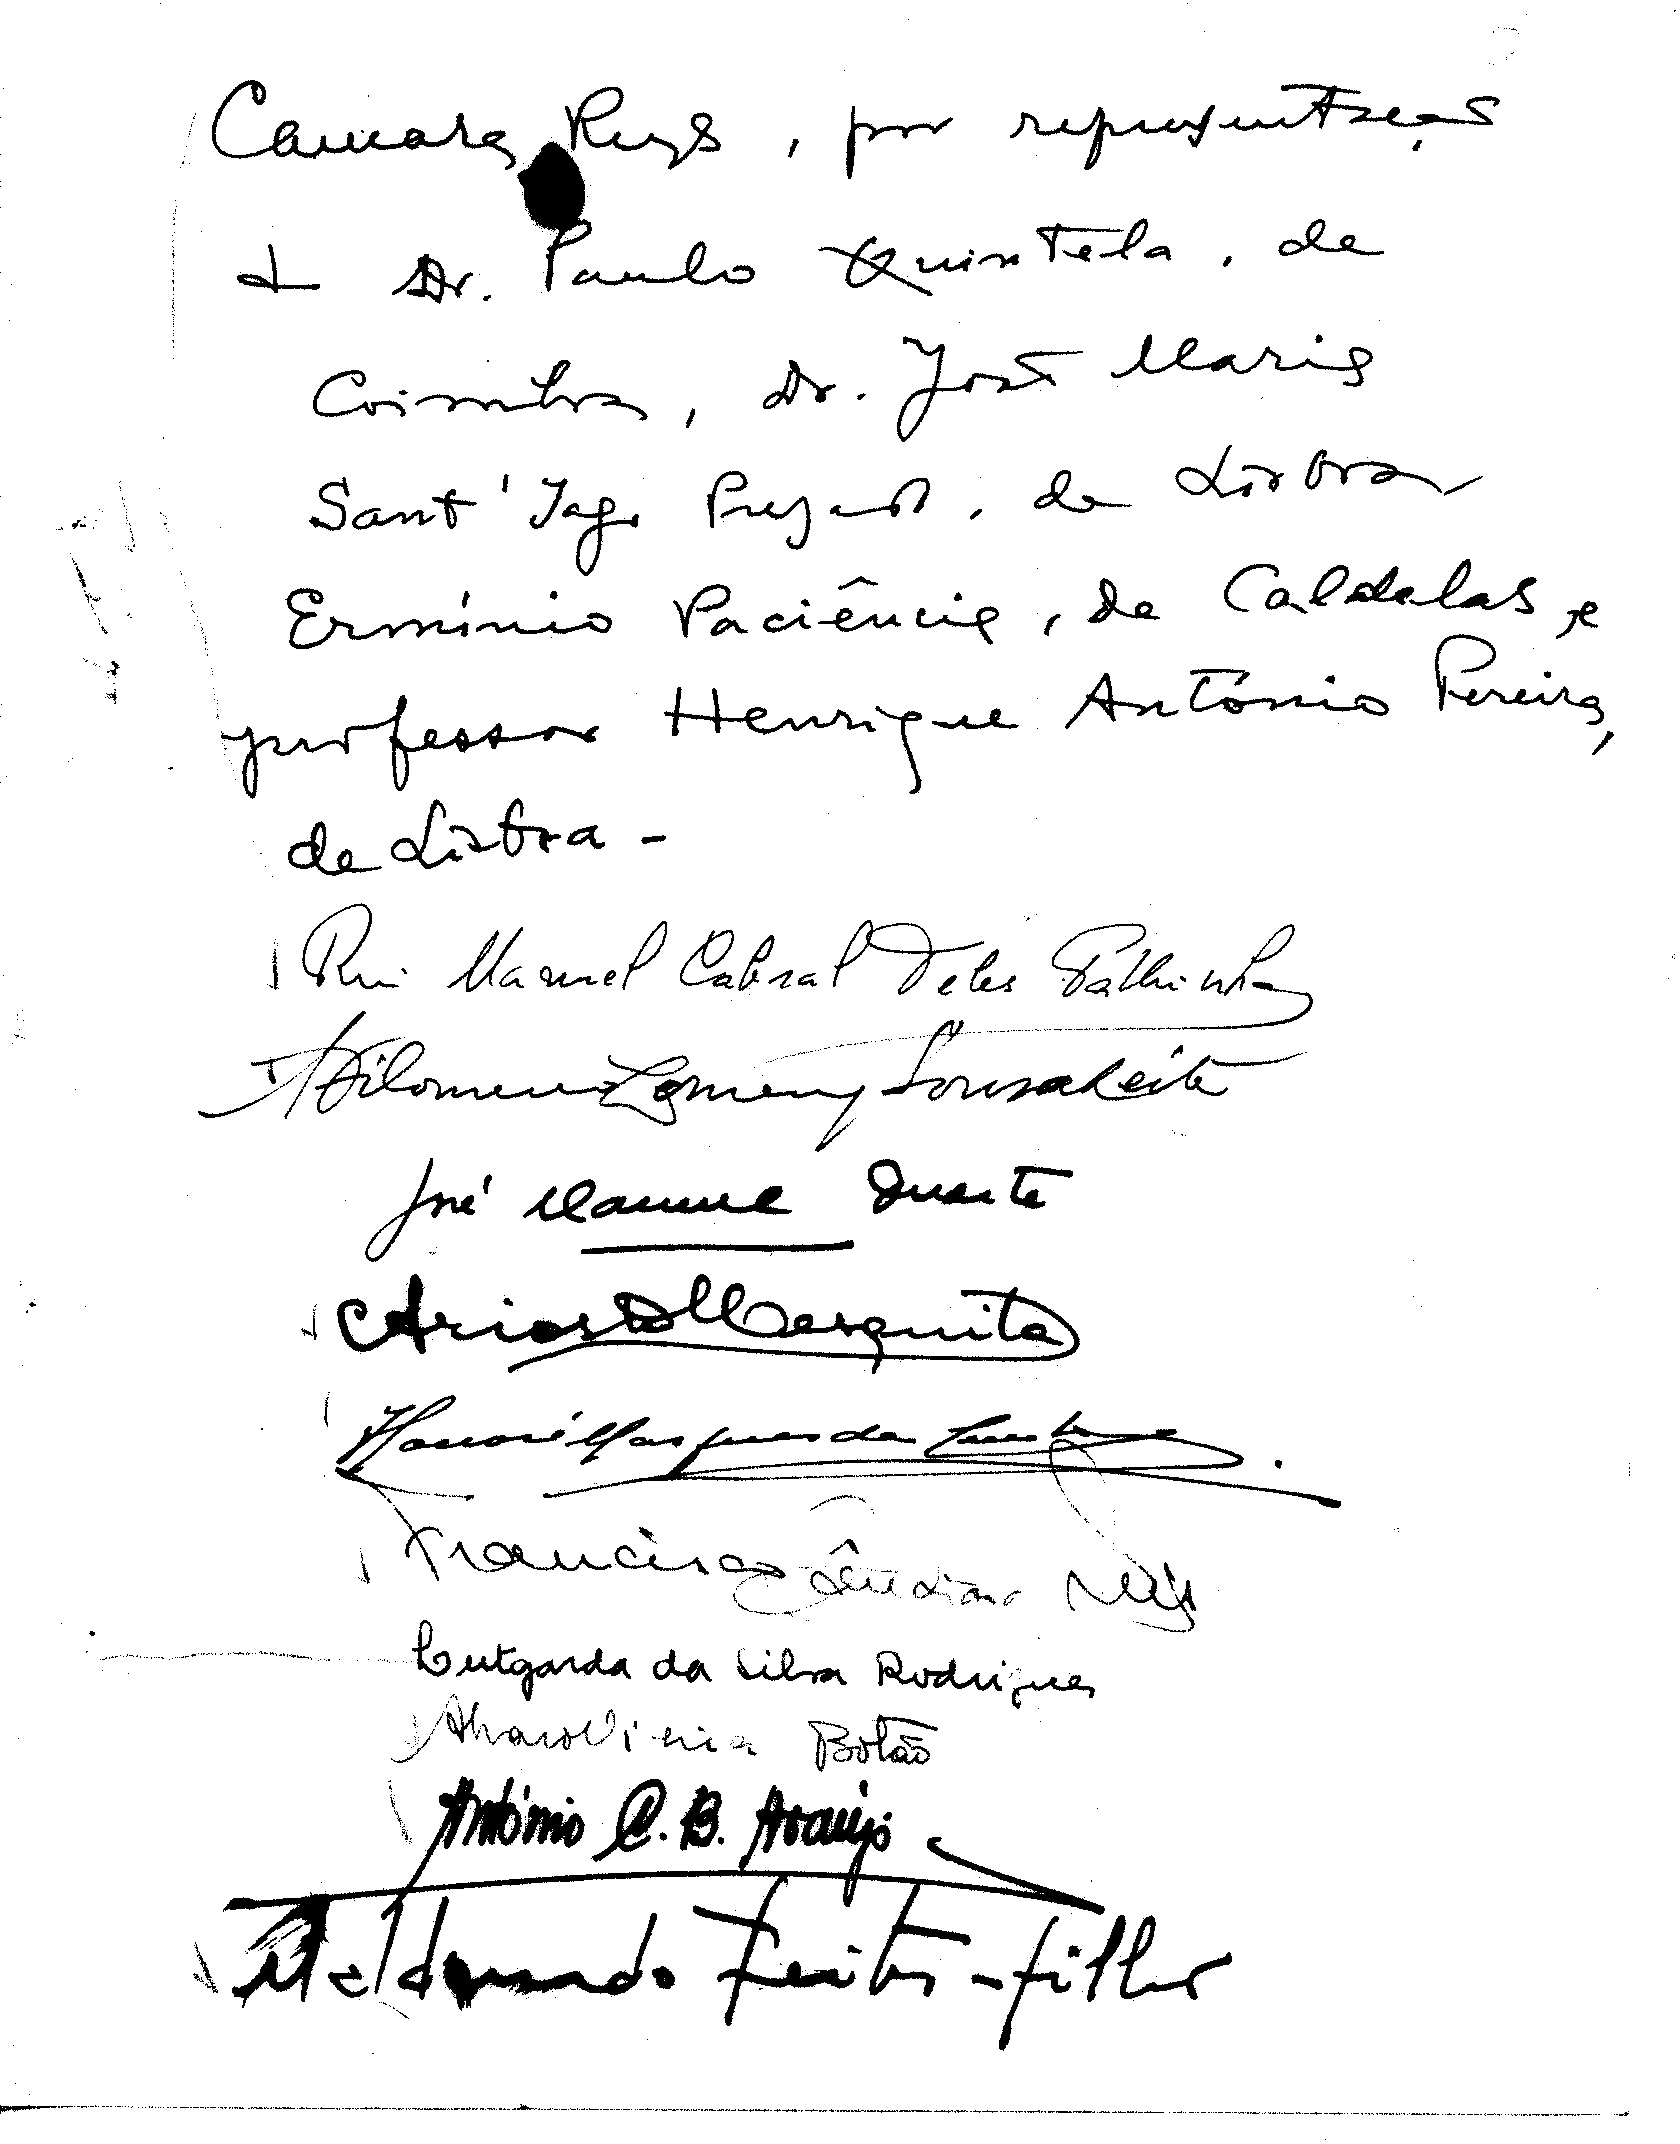 Camara Reys, por representação
Dr. Paulo Quintela, de
Coimbra, Dr. José Maria
Sant'Iago Prezado, de Lisboa
Ermínio Paciência, de Caldelas, e
professor Henrique António Pereira,
de Lisboa -
Rui Manuel Cabral Teles Palhinha
Filomeno Sousa Leite
José Manuel Duarte
Ariosto Mesquita
Marques da
Francisco
Lutgarda da Silva Rodrigues
Alvaro Vieira Botão
António C. B. Araújo
Maldonado Freitas - filho